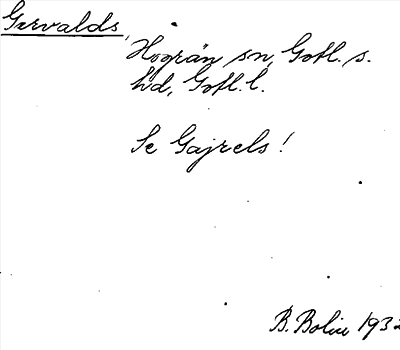 Garvalds,
Hogrän sn, Gotl. s.
hd, Gotl. l.
Se Gajrels!
B. Bolin 1932